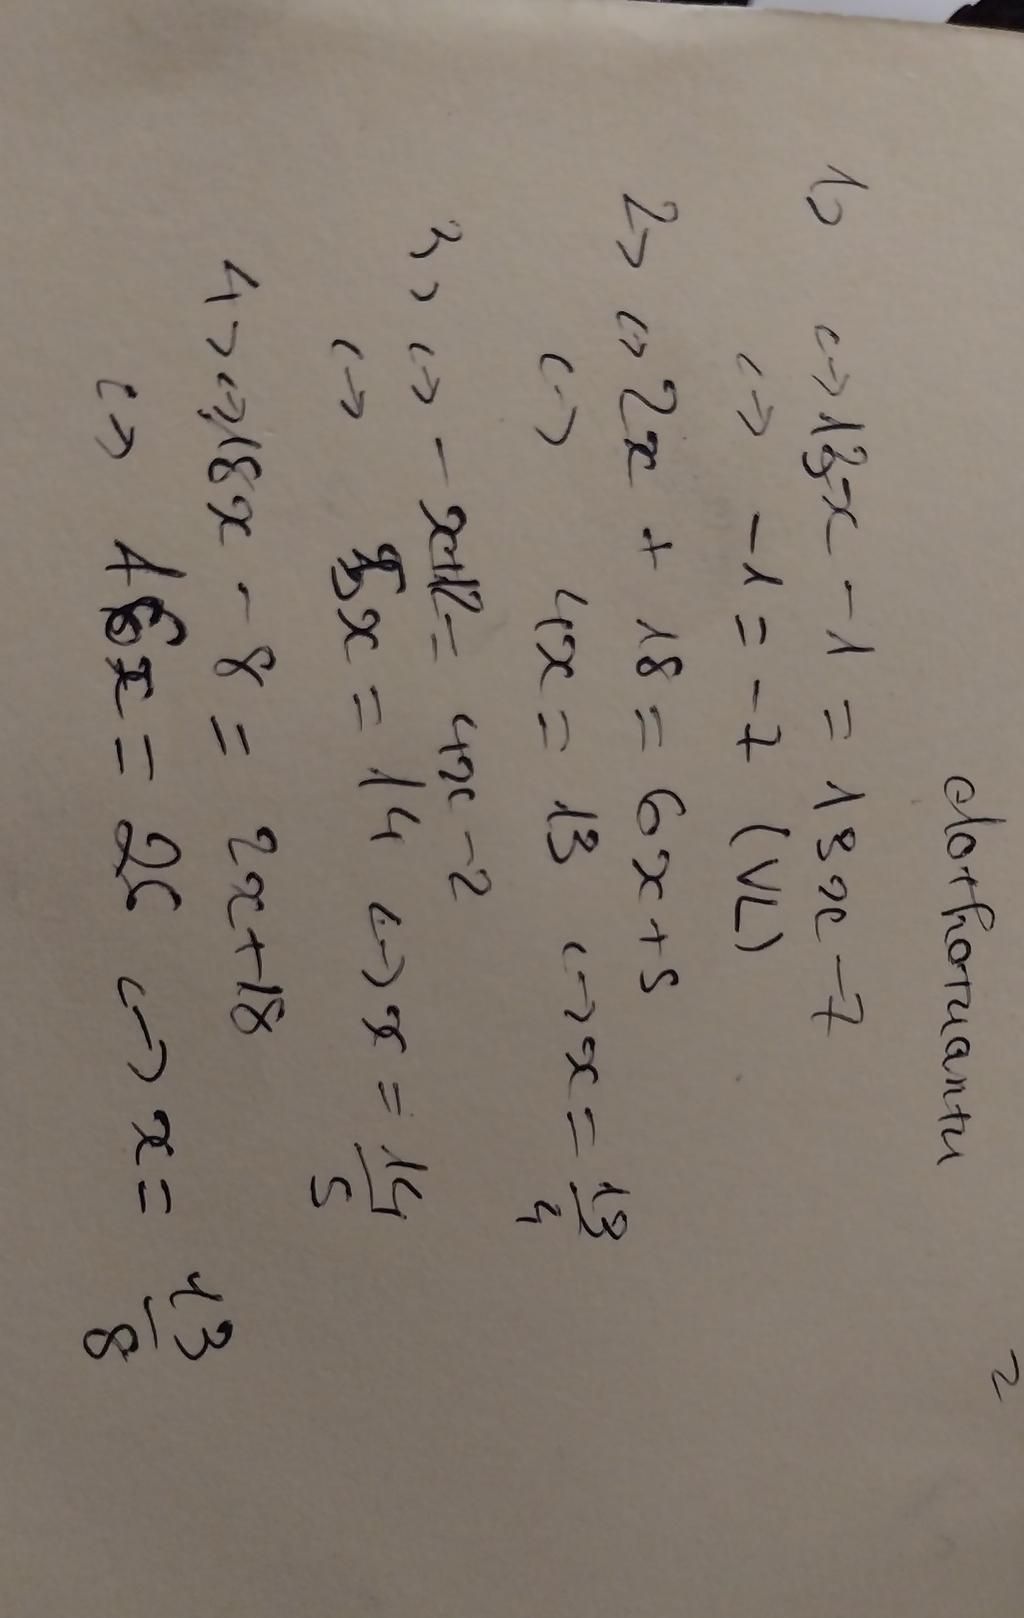 2
1) <-> 13x - 1 = 13x - 7
<-> -1 = -7 (VL)
2) <-> 2x + 18 = 6x + 5
<-> 4x = 13 <-> x = 13/4
3) <-> -x+12 = 4x - 2
<-> 5x = 14 <-> x = 14/5
4) <-> 18x - 8 = 2x + 18
<-> 16x = 26 <-> x = 13/8